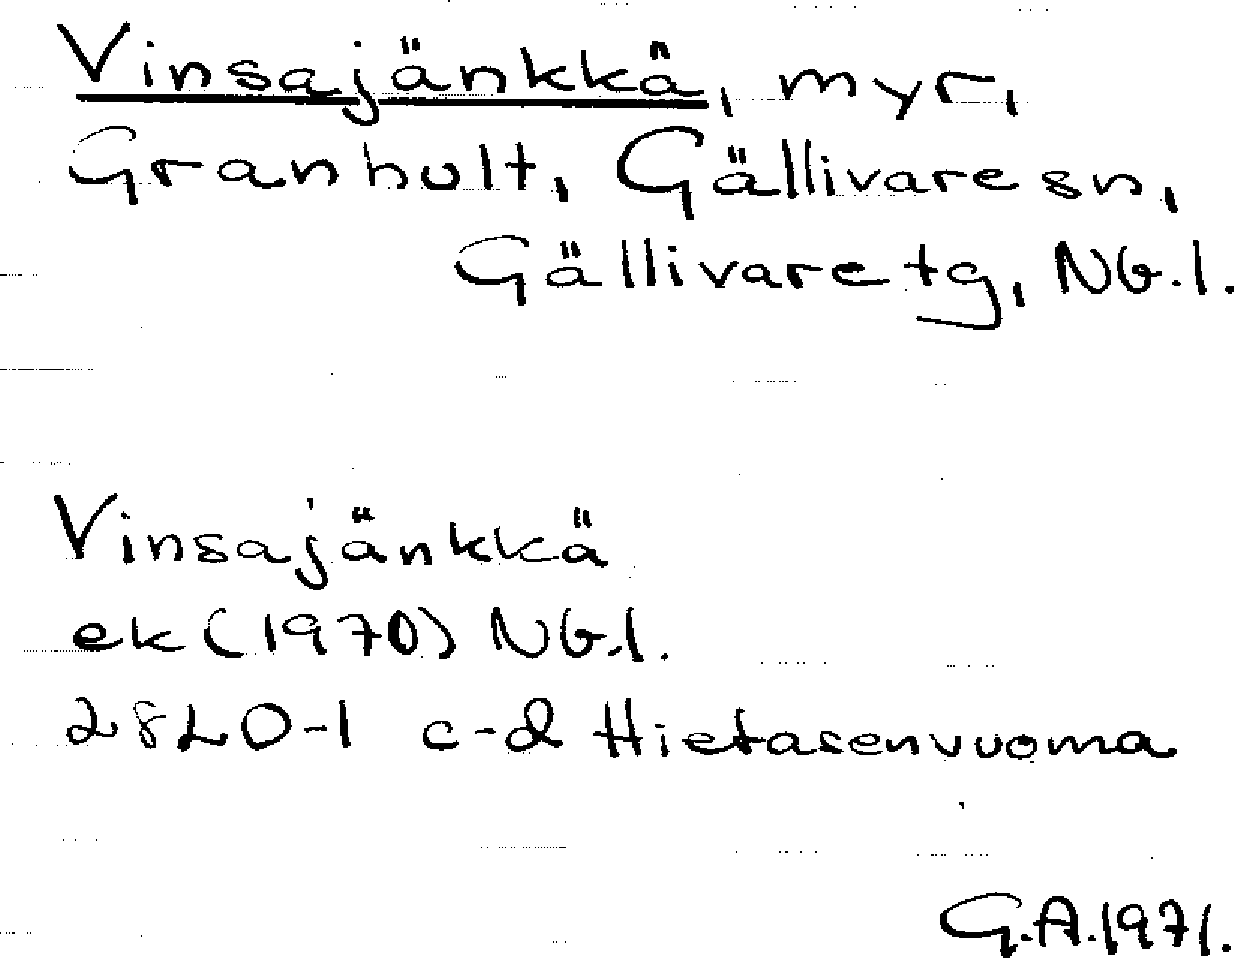 Vinsajänkkä, myr,
Granhult, Gällivare sn,
Gällivare tg, Nb.l.
Vinsajänkkä
ek (1970) Nb.l.
28LD-1 c-d Hietasenvuoma
G.A.1971.